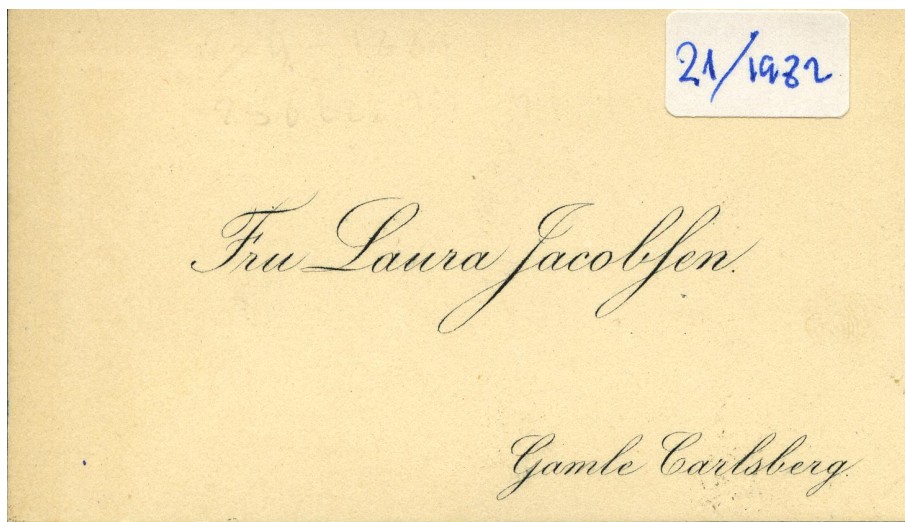 21/1982
Fru Laura Jacobsen.
Gamle Carlsberg.